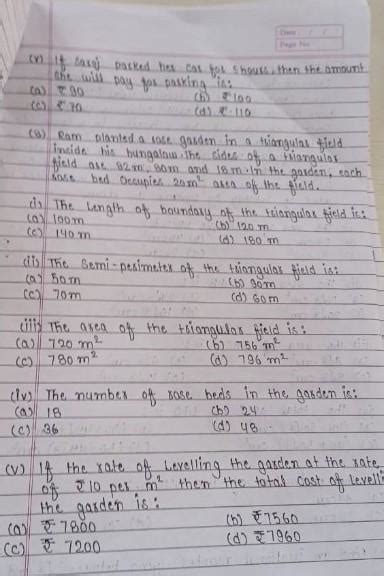 Date: / /
Page No:
(v) If Saroj parked her car for 5 hours, then the amount
she will pay for parking is:
(a) ₹ 90 (b) ₹ 100
(c) ₹ 70 (d) ₹ 110
(3) Ram planted a rose garden in a triangular field
inside his bungalow. The sides of a triangular
field are 82m, 80m and 18m. In the garden, each
rose bed occupies 20m² area of the field.
(i) The Length of boundary of the triangular field is:
(a) 100m (b) 120 m
(c) 140 m (d) 180 m
(ii) The Semi-perimeter of the triangular field is:
(a) 50m (b) 90m
(c) 70m (d) 60m
(iii) The area of the triangular field is:
(a) 720 m² (b) 756 m²
(c) 780 m² (d) 796 m²
(iv) The number of rose beds in the garden is:
(a) 18 (b) 24
(c) 36 (d) 48
(v) If the rate of Levelling the garden at the rate
of ₹10 per m² then the total cost of Levelli
the garden is:
(a) ₹ 7800 (b) ₹7560
(c) ₹ 7200 (d) ₹7960